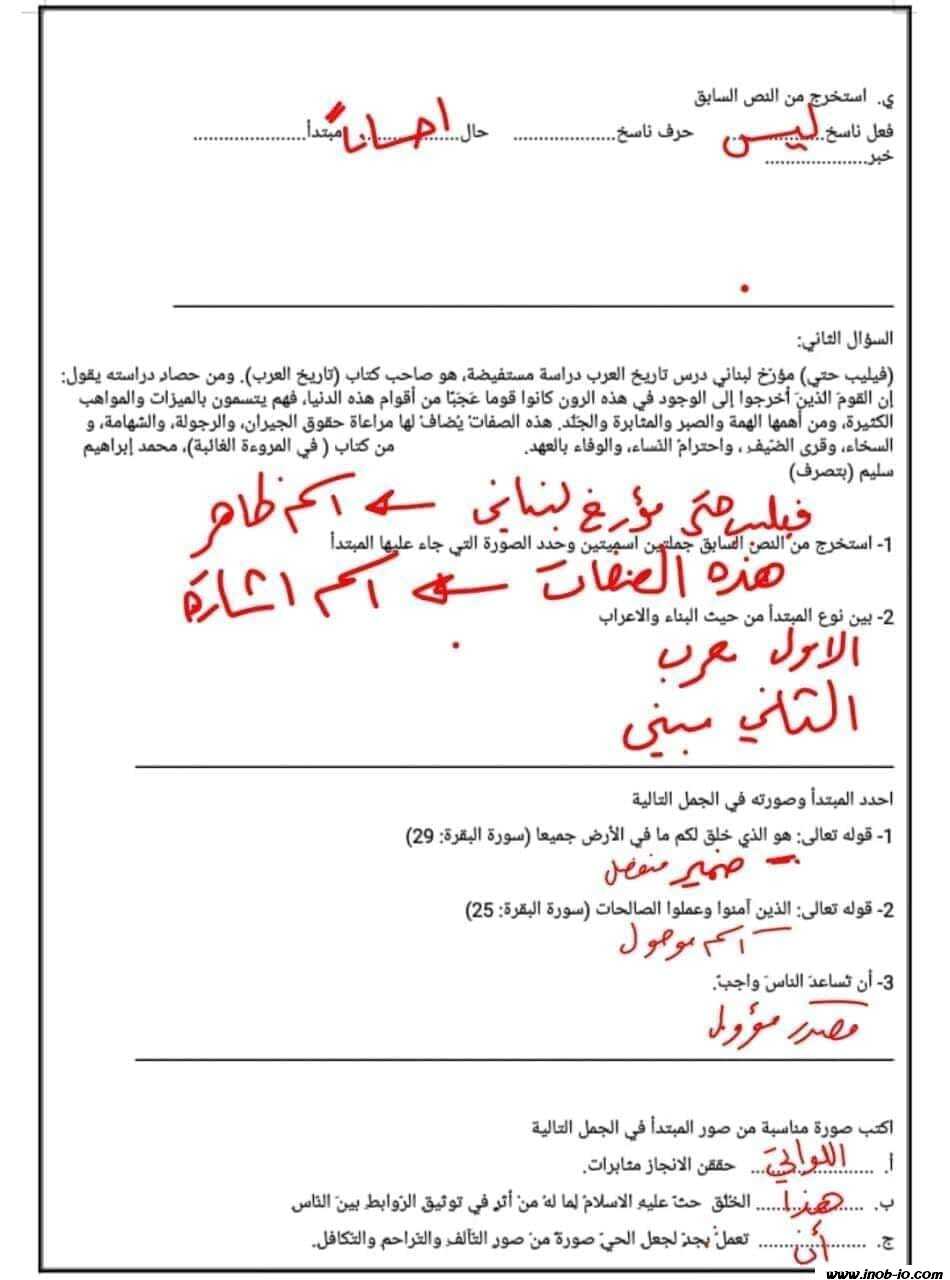 ي. استخرج من النص السابق
فعل ناسخ....ليس.... حرف ناسخ.................... حال....احسانا.... مبتدأ......................
خبر....................
السؤال الثاني:
(فيليب حتي) مؤرّخ لبناني درس تاريخ العرب دراسة مستفيضة، هو صاحب كتاب (تاريخ العرب). ومن حصاد دراسته يقول:
إن القومَ الذينَ أخرجوا إلى الوجود في هذه الرون كانوا قوما عَجَبًا من أقوام هذه الدنيا، فهم يتسمون بالميزات والمواهب
الكثيرة، ومن أهمها الهمة والصبر والمثابرة والجَلَد. هذه الصفاتُ يُضافُ لها مراعاة حقوق الجيران، والرجولة، والشهامة، و
السخاء، وقرى الضّيف ، واحترامُ النساء، والوفاء بالعهد. من كتاب ( في المروءة الغائبة)، محمد إبراهيم
سليم (بتصرف)
فيليب حتي مؤرخ لبناني ← اسم ظاهر
1- استخرج من النص السابق جملتين اسميتين وحدد الصورة التي جاء عليها المبتدأ
هذه الصفات ← اسم اشارة
2- بين نوع المبتدأ من حيث البناء والاعراب
الاول معرب
الثاني مبني
احدد المبتدأ وصورته في الجمل التالية
1- قوله تعالى: هو الذي خلق لكم ما في الأرض جميعا (سورة البقرة: 29)
ضمير منفصل
2- قوله تعالى: الذين آمنوا وعملوا الصالحات (سورة البقرة: 25)
اسم موصول
3- أن تساعدَ الناسَ واجبٌ.
مصدر مؤول
اكتب صورة مناسبة من صور المبتدأ في الجمل التالية
أ. ....اللواتي.... حققن الانجاز مثابرات.
ب. ....هذا.... الخلق حثّ عليه الاسلامُ لِما لهُ من أثرٍ في توثيق الرّوابط بينَ الناس
ج. ....أن.... تعملَ بجدٍ لجعل الحيّ صورةً منْ صور التآلفِ والتراحم والتكافل.
www.inob-io.com